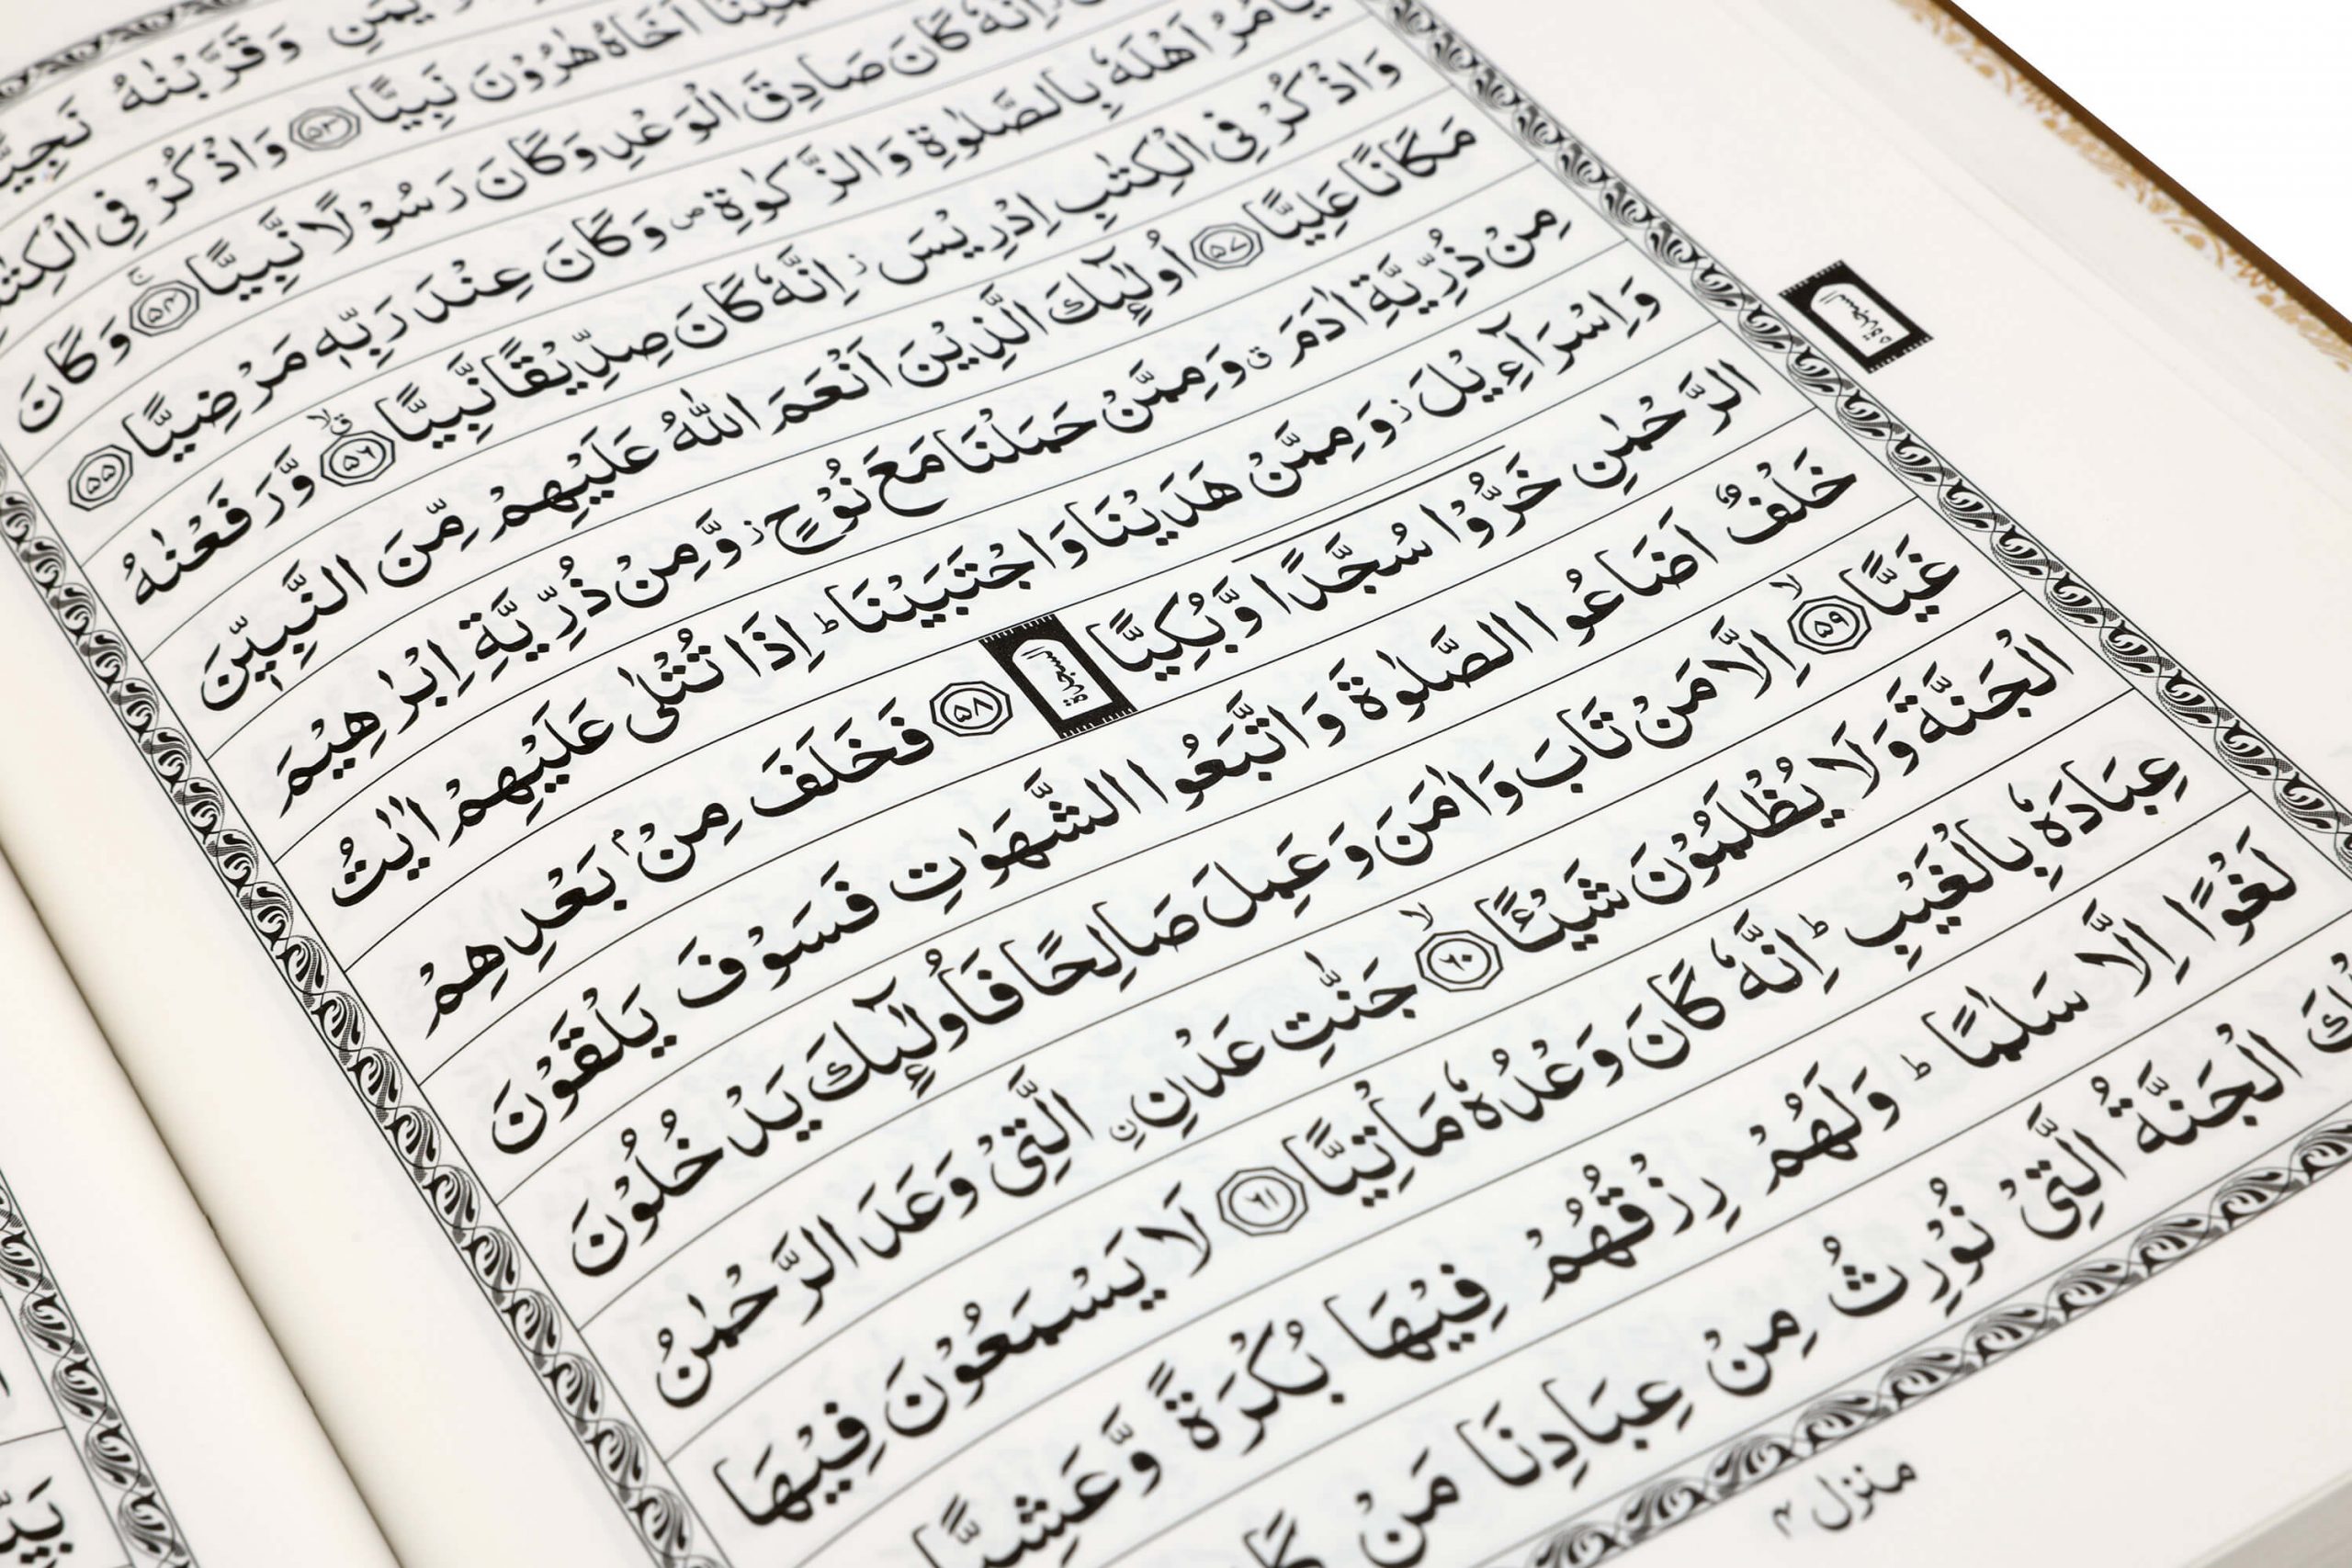 وَقَرَّبْنٰهُ
اَخَاهُ هٰرُوْنَ نَبِيًّا ﴿۵۳﴾ وَاذْكُرْ فِى الْكِتٰبِ
اِنَّهٗ كَانَ صَادِقَ الْوَعْدِ وَكَانَ رَسُوْلًا نَّبِيًّا ﴿۵۴﴾ۚ وَكَانَ
يَاْمُرُ اَهْلَهٗ بِالصَّلٰوةِ وَالزَّكٰوةِ ۪ وَكَانَ عِنْدَ رَبِّهٖ مَرْضِيًّا ﴿۵۵﴾
وَاذْكُرْ فِى الْكِتٰبِ اِدْرِيْسَ ز اِنَّهٗ كَانَ صِدِّيْقًا نَّبِيًّا ﴿۵۶﴾ وَّرَفَعْنٰهُ
مَكَانًا عَلِيًّا ﴿۵۷﴾ اُولٰٓئِكَ الَّذِيْنَ اَنْعَمَ اللّٰهُ عَلَيْهِمْ مِّنَ النَّبِيّٖنَ
مِنْ ذُرِّيَّةِ اٰدَمَ ق وَمِمَّنْ حَمَلْنَا مَعَ نُوْحٍ ز وَّمِنْ ذُرِّيَّةِ اِبْرٰهِيْمَ
وَاِسْرَآءِيْلَ ز وَمِمَّنْ هَدَيْنَا وَاجْتَبَيْنَا ط اِذَا تُتْلٰى عَلَيْهِمْ اٰيٰتُ
الرَّحْمٰنِ خَرُّوْا سُجَّدًا وَّبُكِيًّا السجدة ﴿۵۸﴾ فَخَلَفَ مِنْۢ بَعْدِهِمْ
السجدة ۵
خَلْفٌ اَضَاعُوا الصَّلٰوةَ وَاتَّبَعُوا الشَّهَوٰتِ فَسَوْفَ يَلْقَوْنَ
غَيًّا ﴿۵۹﴾ۙ اِلَّا مَنْ تَابَ وَاٰمَنَ وَعَمِلَ صَالِحًا فَاُولٰٓئِكَ يَدْخُلُوْنَ
الْجَنَّةَ وَلَا يُظْلَمُوْنَ شَيْـًٔا ﴿۶۰﴾ۙ جَنّٰتِ عَدْنِ ۨ الَّتِىْ وَعَدَ الرَّحْمٰنُ
عِبَادَهٗ بِالْغَيْبِ ط اِنَّهٗ كَانَ وَعْدُهٗ مَاْتِيًّا ﴿۶۱﴾ لَا يَسْمَعُوْنَ فِيْهَا
لَغْوًا اِلَّا سَلٰمًا ط وَلَهُمْ رِزْقُهُمْ فِيْهَا بُكْرَةً وَّعَشِيًّا
الْجَنَّةُ الَّتِىْ نُوْرِثُ مِنْ عِبَادِنَا مَنْ
منزل ۴